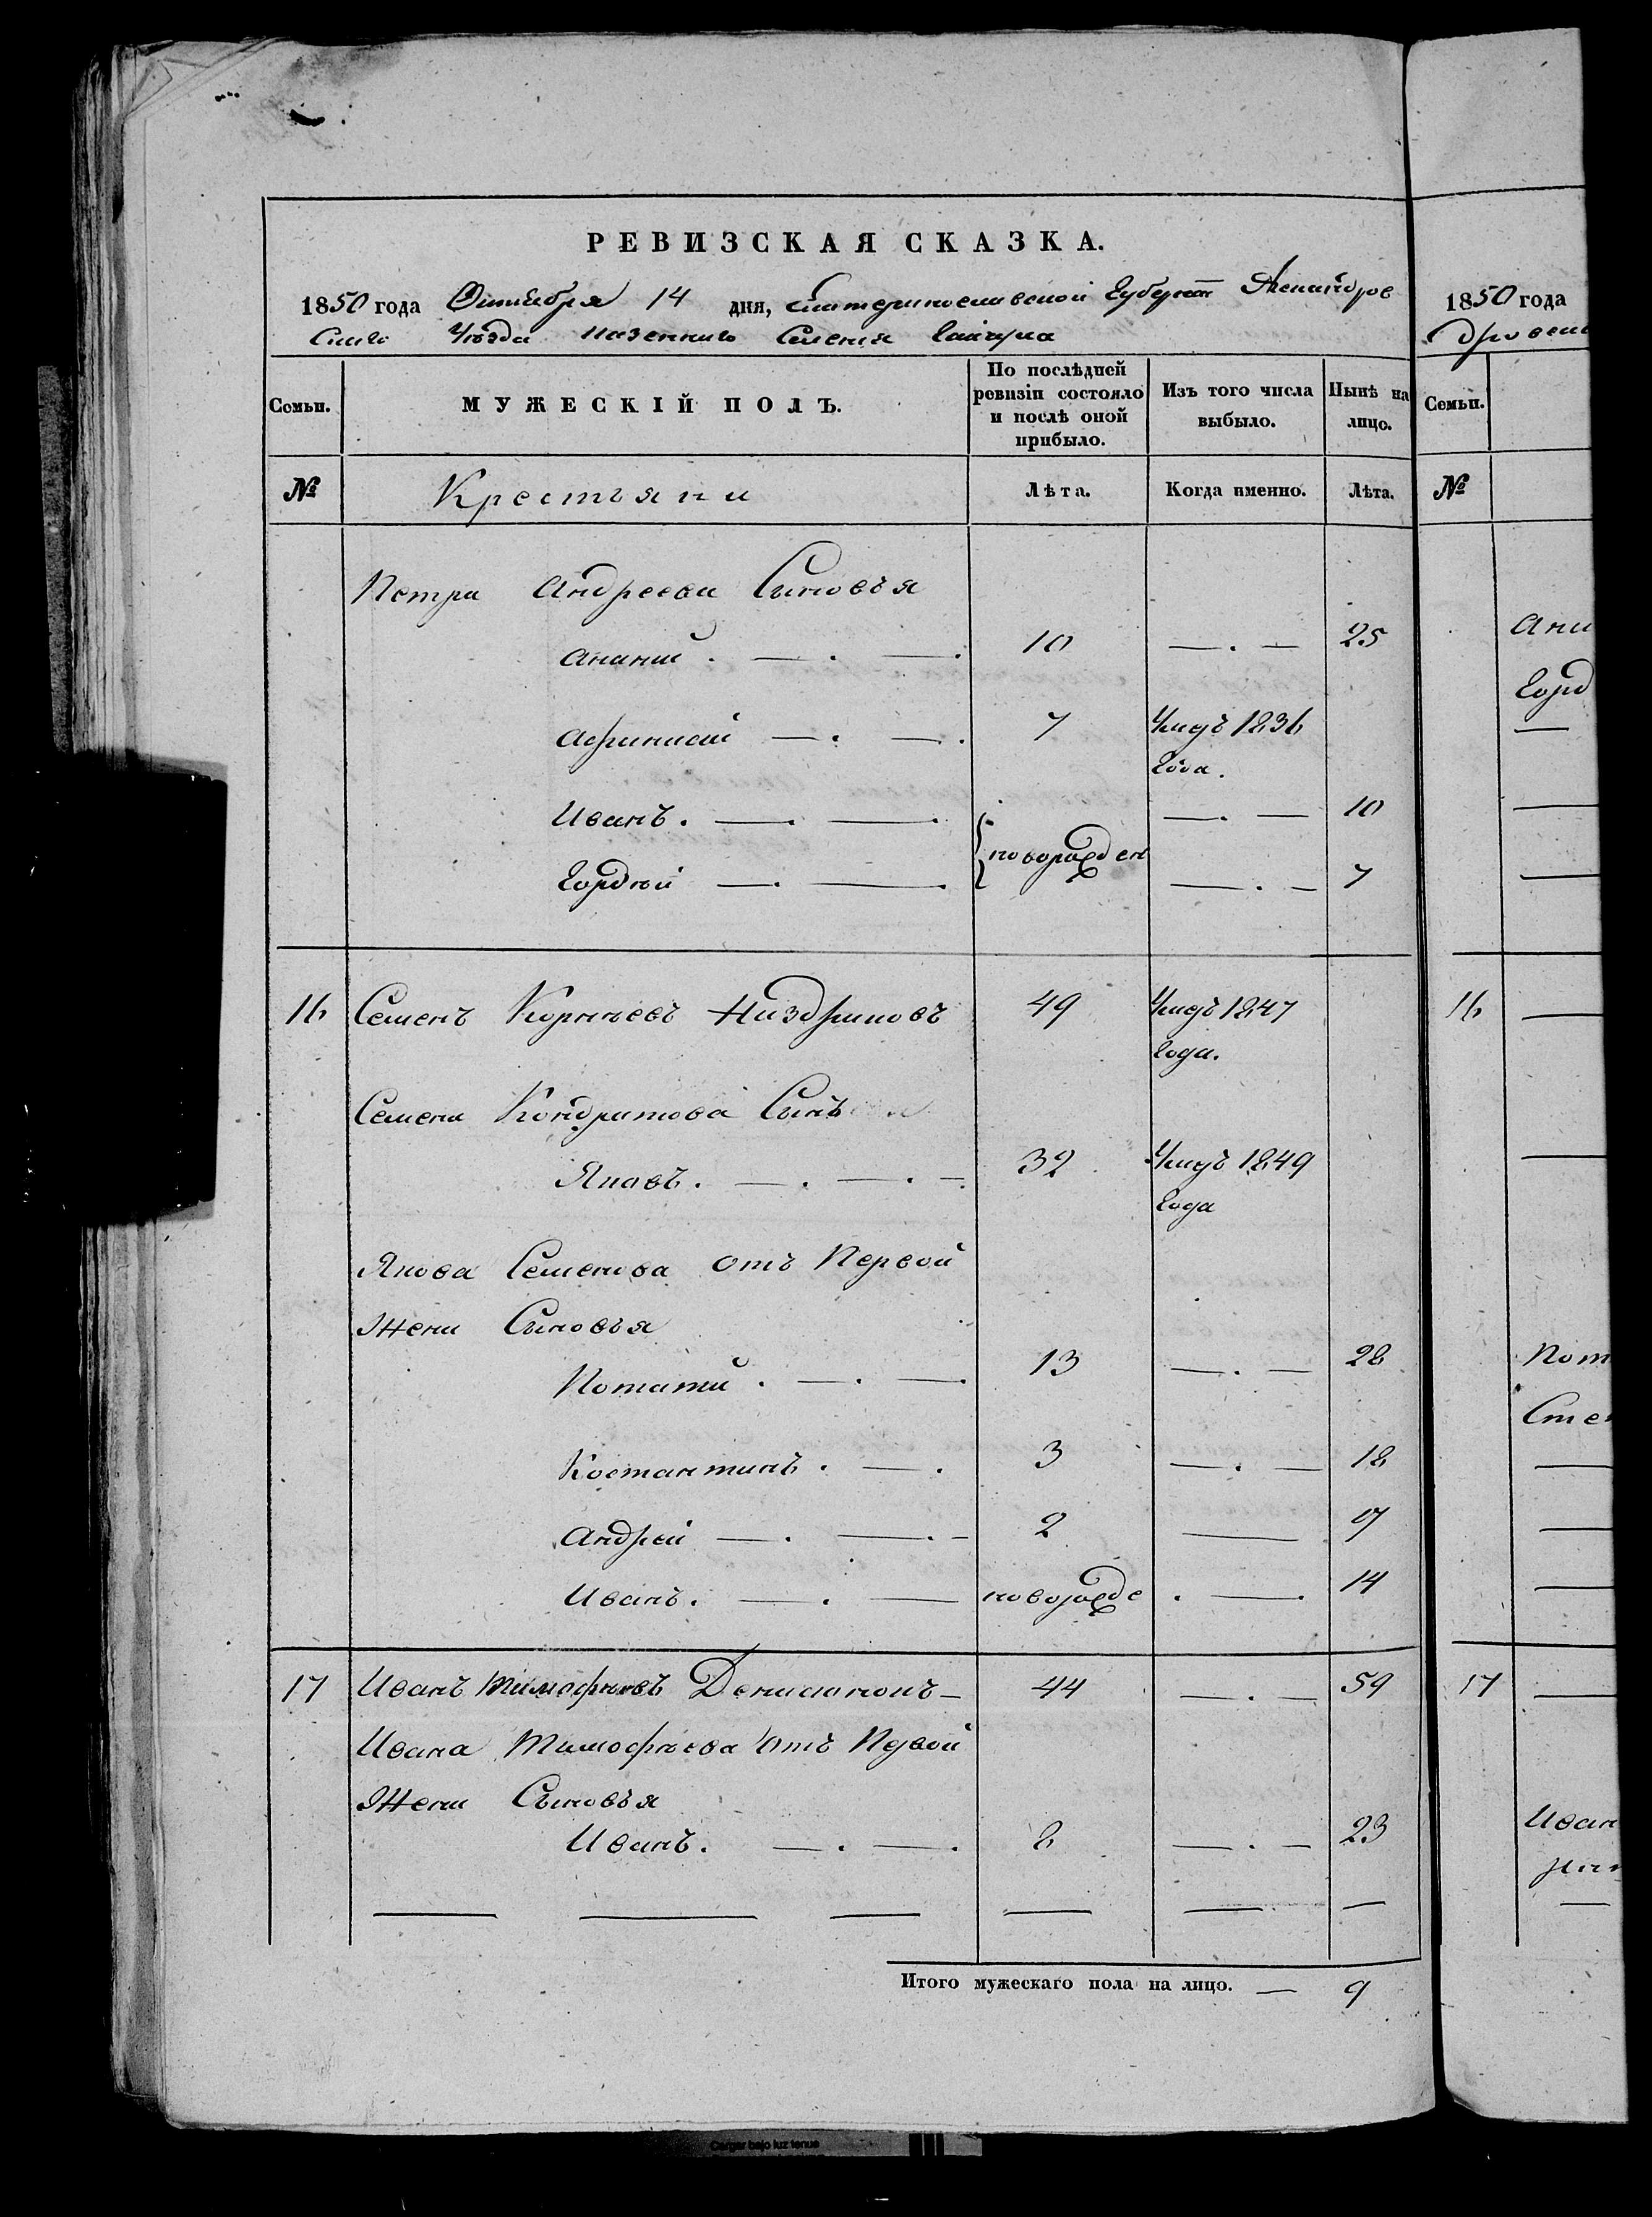 РЕВИЗСКАЯ СКАЗКА.
1850 года Октября 14 дня, Екатеринославской Губерніи Александров
скаго Уѣзда Казенного Селенія Гайчула
Семьи.
МУЖЕСКІЙ ПОЛЪ.
По послѣдней ревизіи состояло и послѣ оной прибыло.
Изъ того числа выбыло.
Нынѣ на лицо.
№ Крестьяни Лѣта. Когда именно. Лѣта.
Петра Андреева Сыновья
Ананий . — . — . 10 — . — 25
Афанасий — . — . 7 Умеръ 1836
Года.
Иванъ . — . — . новорожден — . — 10
Гордѣй — . — . — . — 7
16 Семенъ Корнѣевъ Низдриновъ 49 Умеръ 1847
Года.
Семена Кондратова Сынъ
Яковъ . — . — . — 32 Умеръ 1849
Года
Якова Семенова отъ Первой
Жени Сыновья
Потапий . — . — . 13 — . — 28
Костантинъ . — . 3 — . — 18
Андрей — . — . — 2 — 17
Иванъ . — . — новорожде . — . 14
17 Иванъ Тимофѣевъ — 44 — . — 59
Ивана Тимофѣева отъ Первой
Жени Сыновья
Иванъ . — . — . 8 — . — 23
Итого мужескаго пола на лицо. — 9
1850 года
дровск
Семьи.
№
Ани
Горд
16
Пот
Степ
17
Иван